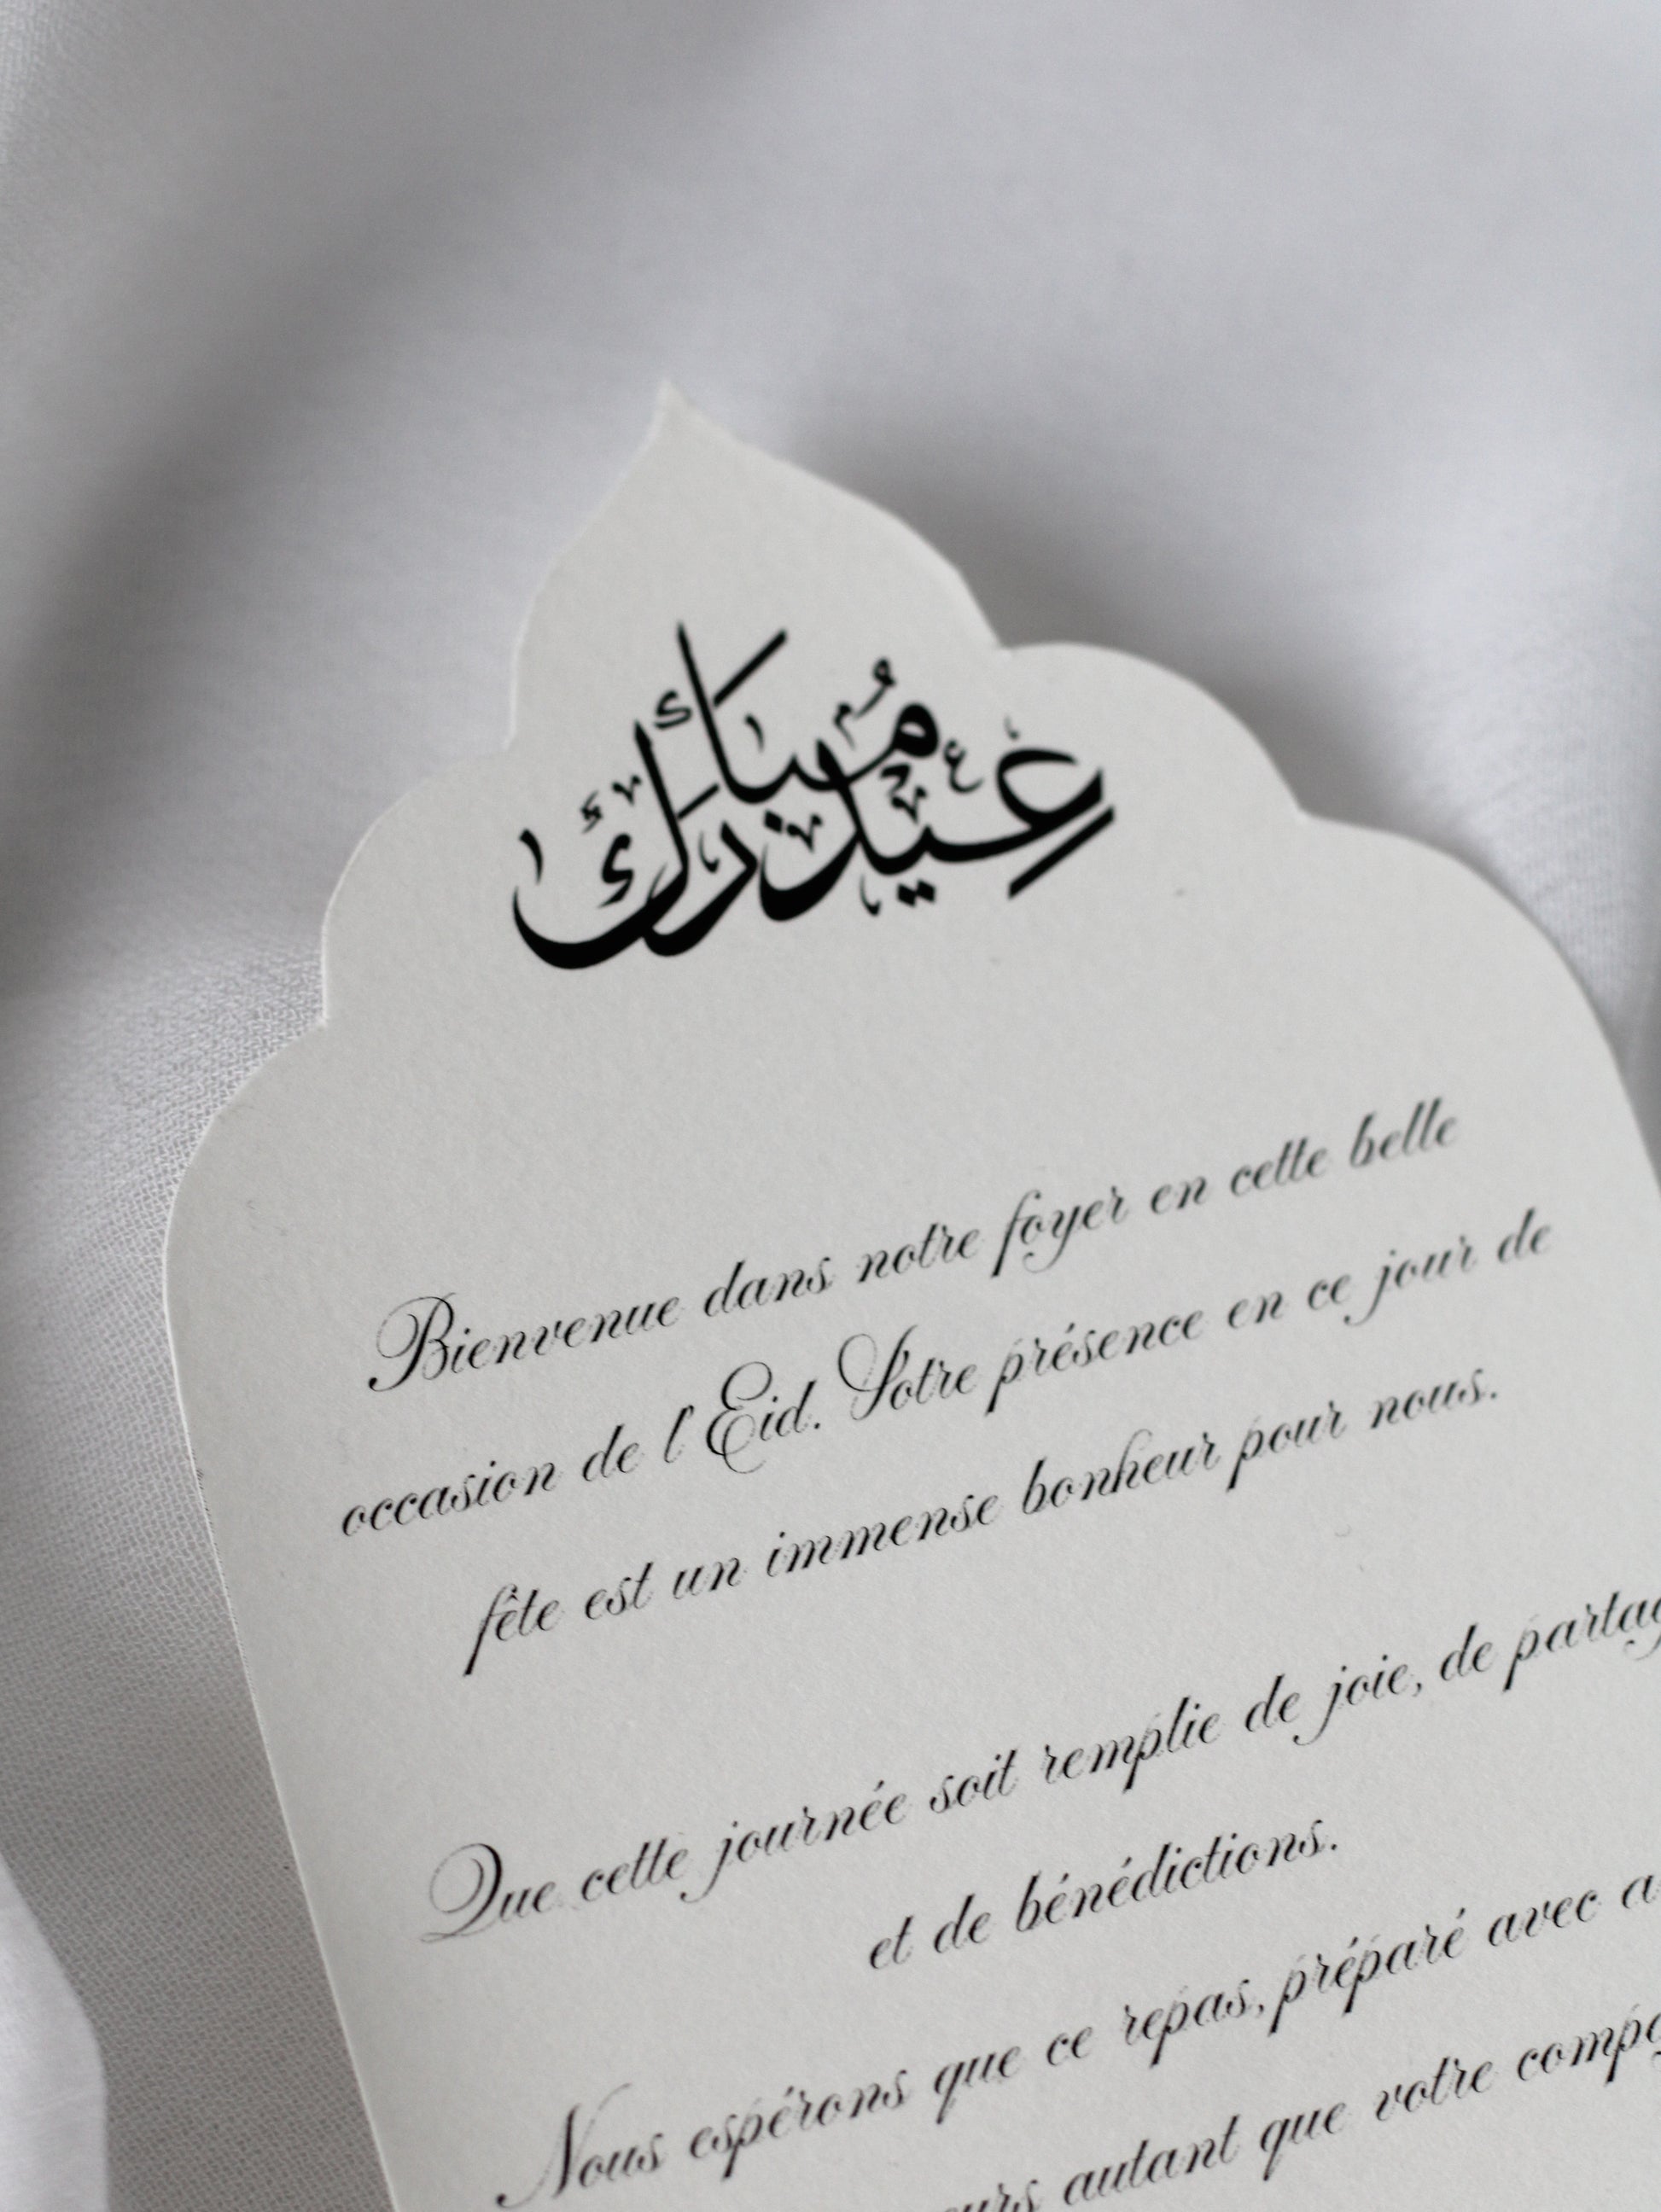 عيد مبارك
Bienvenue dans notre foyer en cette belle
occasion de l'Eid. Votre présence en ce jour de
fête est un immense bonheur pour nous.
Que cette journée soit remplie de joie, de
et de bénédictions.
Nous espérons que ce repas, préparé avec
autant que votre